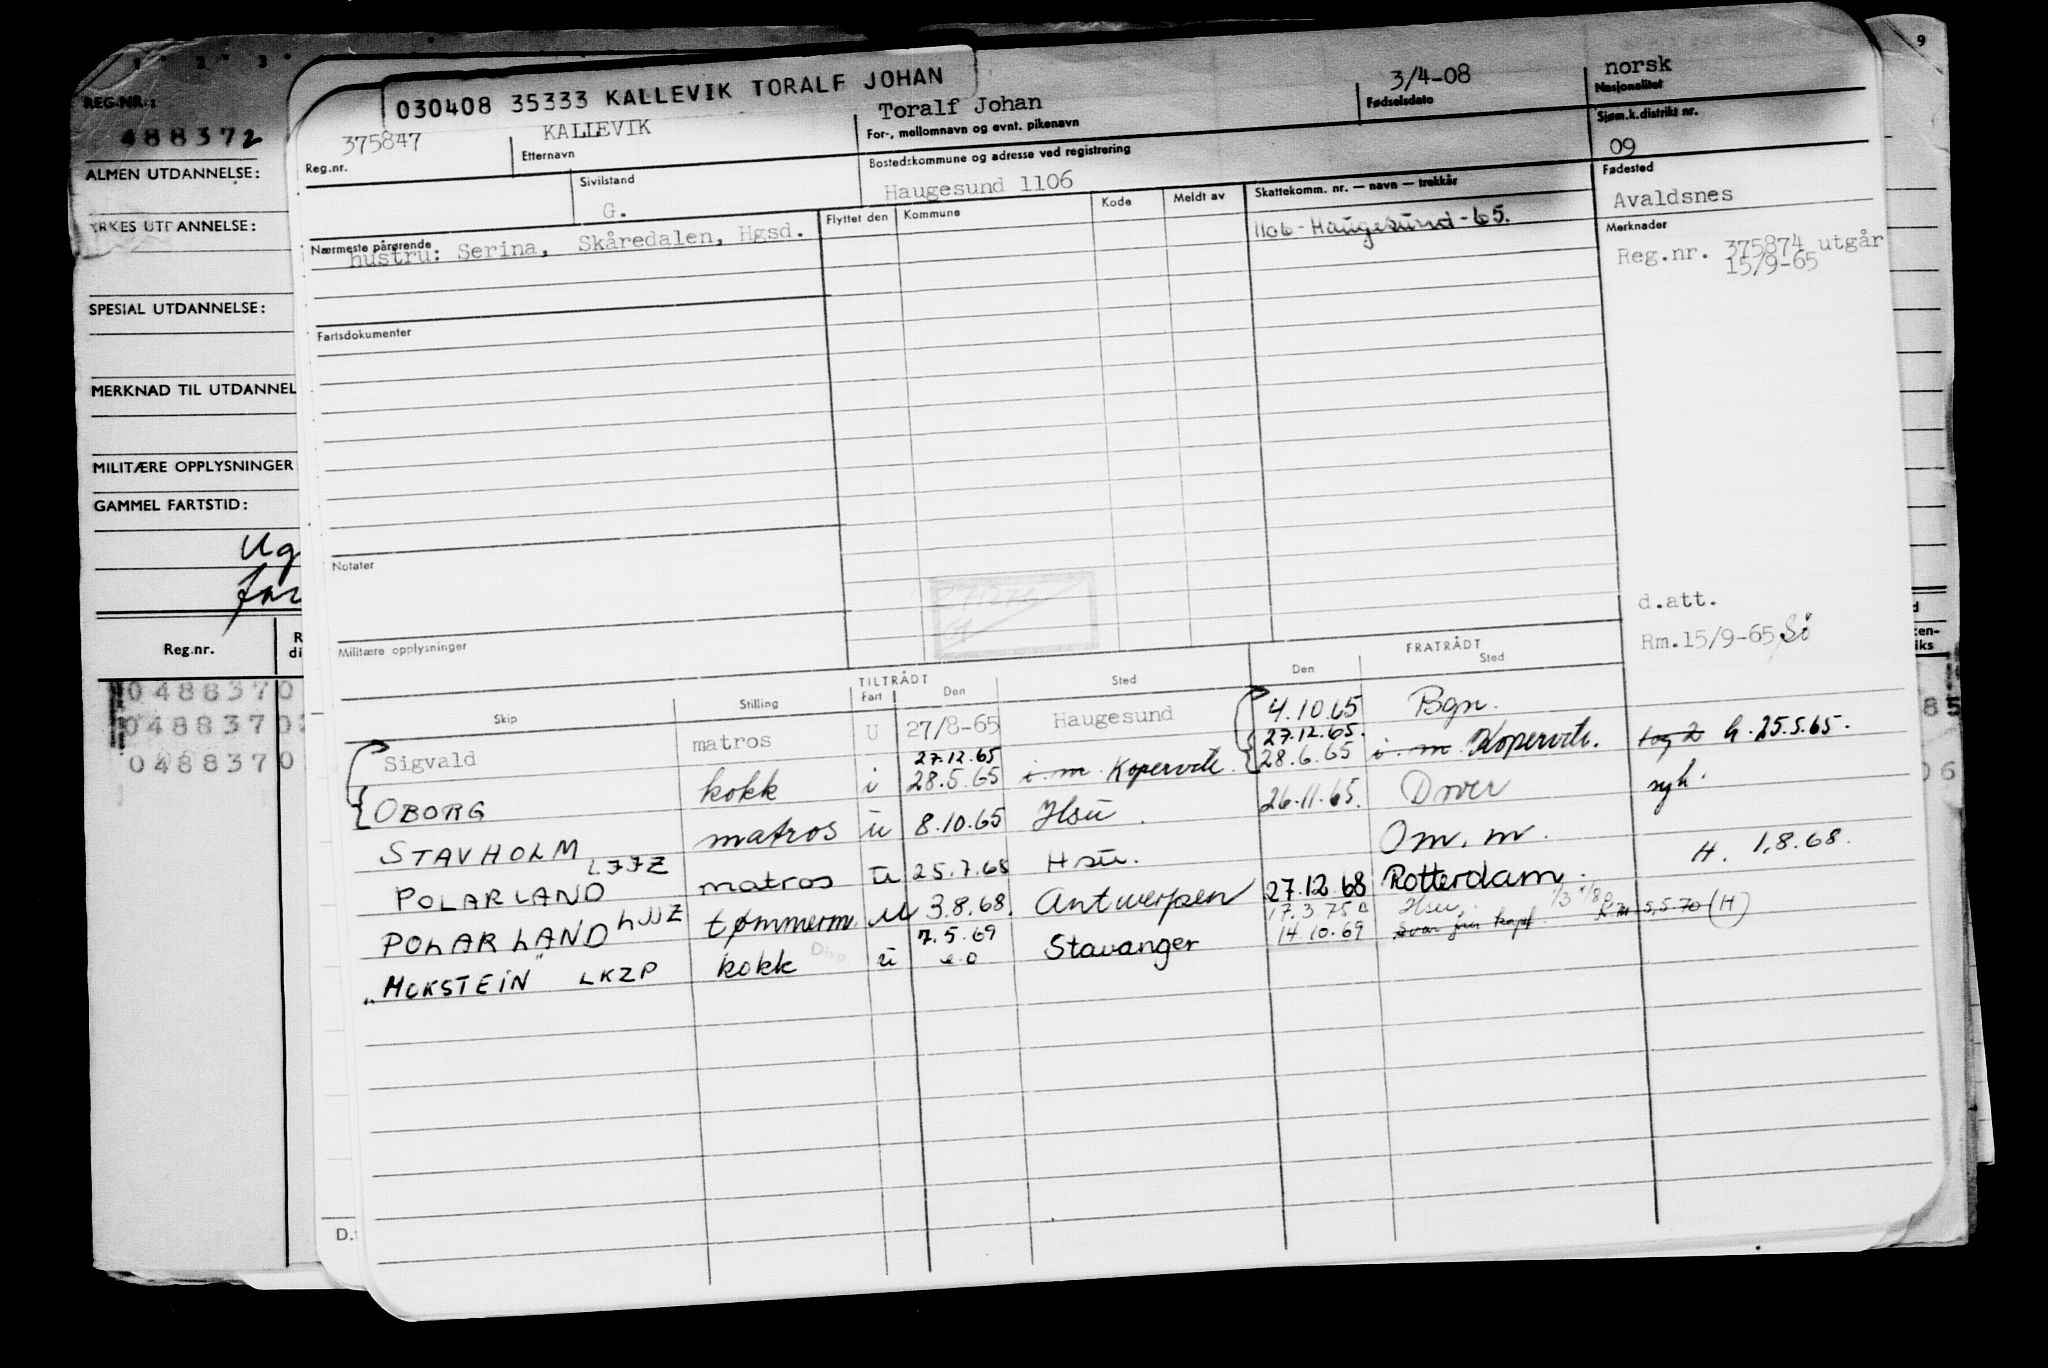 REG.NR.:
488372
ALMEN UTDANNELSE:
YRKES UTDANNELSE:
SPESIAL UTDANNELSE:
MERKNAD TIL UTDANNEL
MILITÆRE OPPLYSNINGER
GAMMEL FARTSTID:
Ug
far
Reg.nr.
R
di
0488370
0488370
0488370
D.
9
030408 35333 KALLEVIK TORALF JOHAN
375847 KALLEVIK Toralf Johan 3/4-08 norsk
Reg.nr. Etternavn For-, mellomnavn og evnt. pikenavn Fødselsdato Nasjonalitet
Sivilstand Bostedskommune og adresse ved registrering Sjøm.k.distrikt nr.
G. Haugesund 1106 09
Nærmeste pårørende Flyttet den Kommune Kode Meldt av Skattekomm. nr. — navn — trekkår Fødested
hustru: Serina, Skåredalen, Hgsd. 1106 - Haugesund - 65. Avaldsnes
Merknader
Reg.nr. 375874 utgår
15/9-65
Fartsdokumenter
Notater
d.att.
Militære opplysninger Rm.15/9-65
TILTRÅDT FRATRÅDT
Skip Stilling Fart Den Sted Den Sted
Sigvald matros U 27/8-65 Haugesund 4.10.65 Bgn.
27.12.65 27.12.65.
OBORG kokk i 28.5.65 i. m. Kopervik 28.6.65 i. m Kopervik. h. 25.5.65.
STAVHOLM matros u 8.10.65 Hsu. 26.11.65. Dover syk.
POLARLAND LJJZ matros u 25.7.68 Hsu. Om. m. H. 1.8.68.
POLARLAND LJJZ tømmerm. u 3.8.68. Antwerpen 27.12.68 Rotterdam.
17.3.75 Hsu.
"HOKSTEIN" LKZP kokk Disp. u 7.5.69 Stavanger 14.10.69 5.5.70 (H)